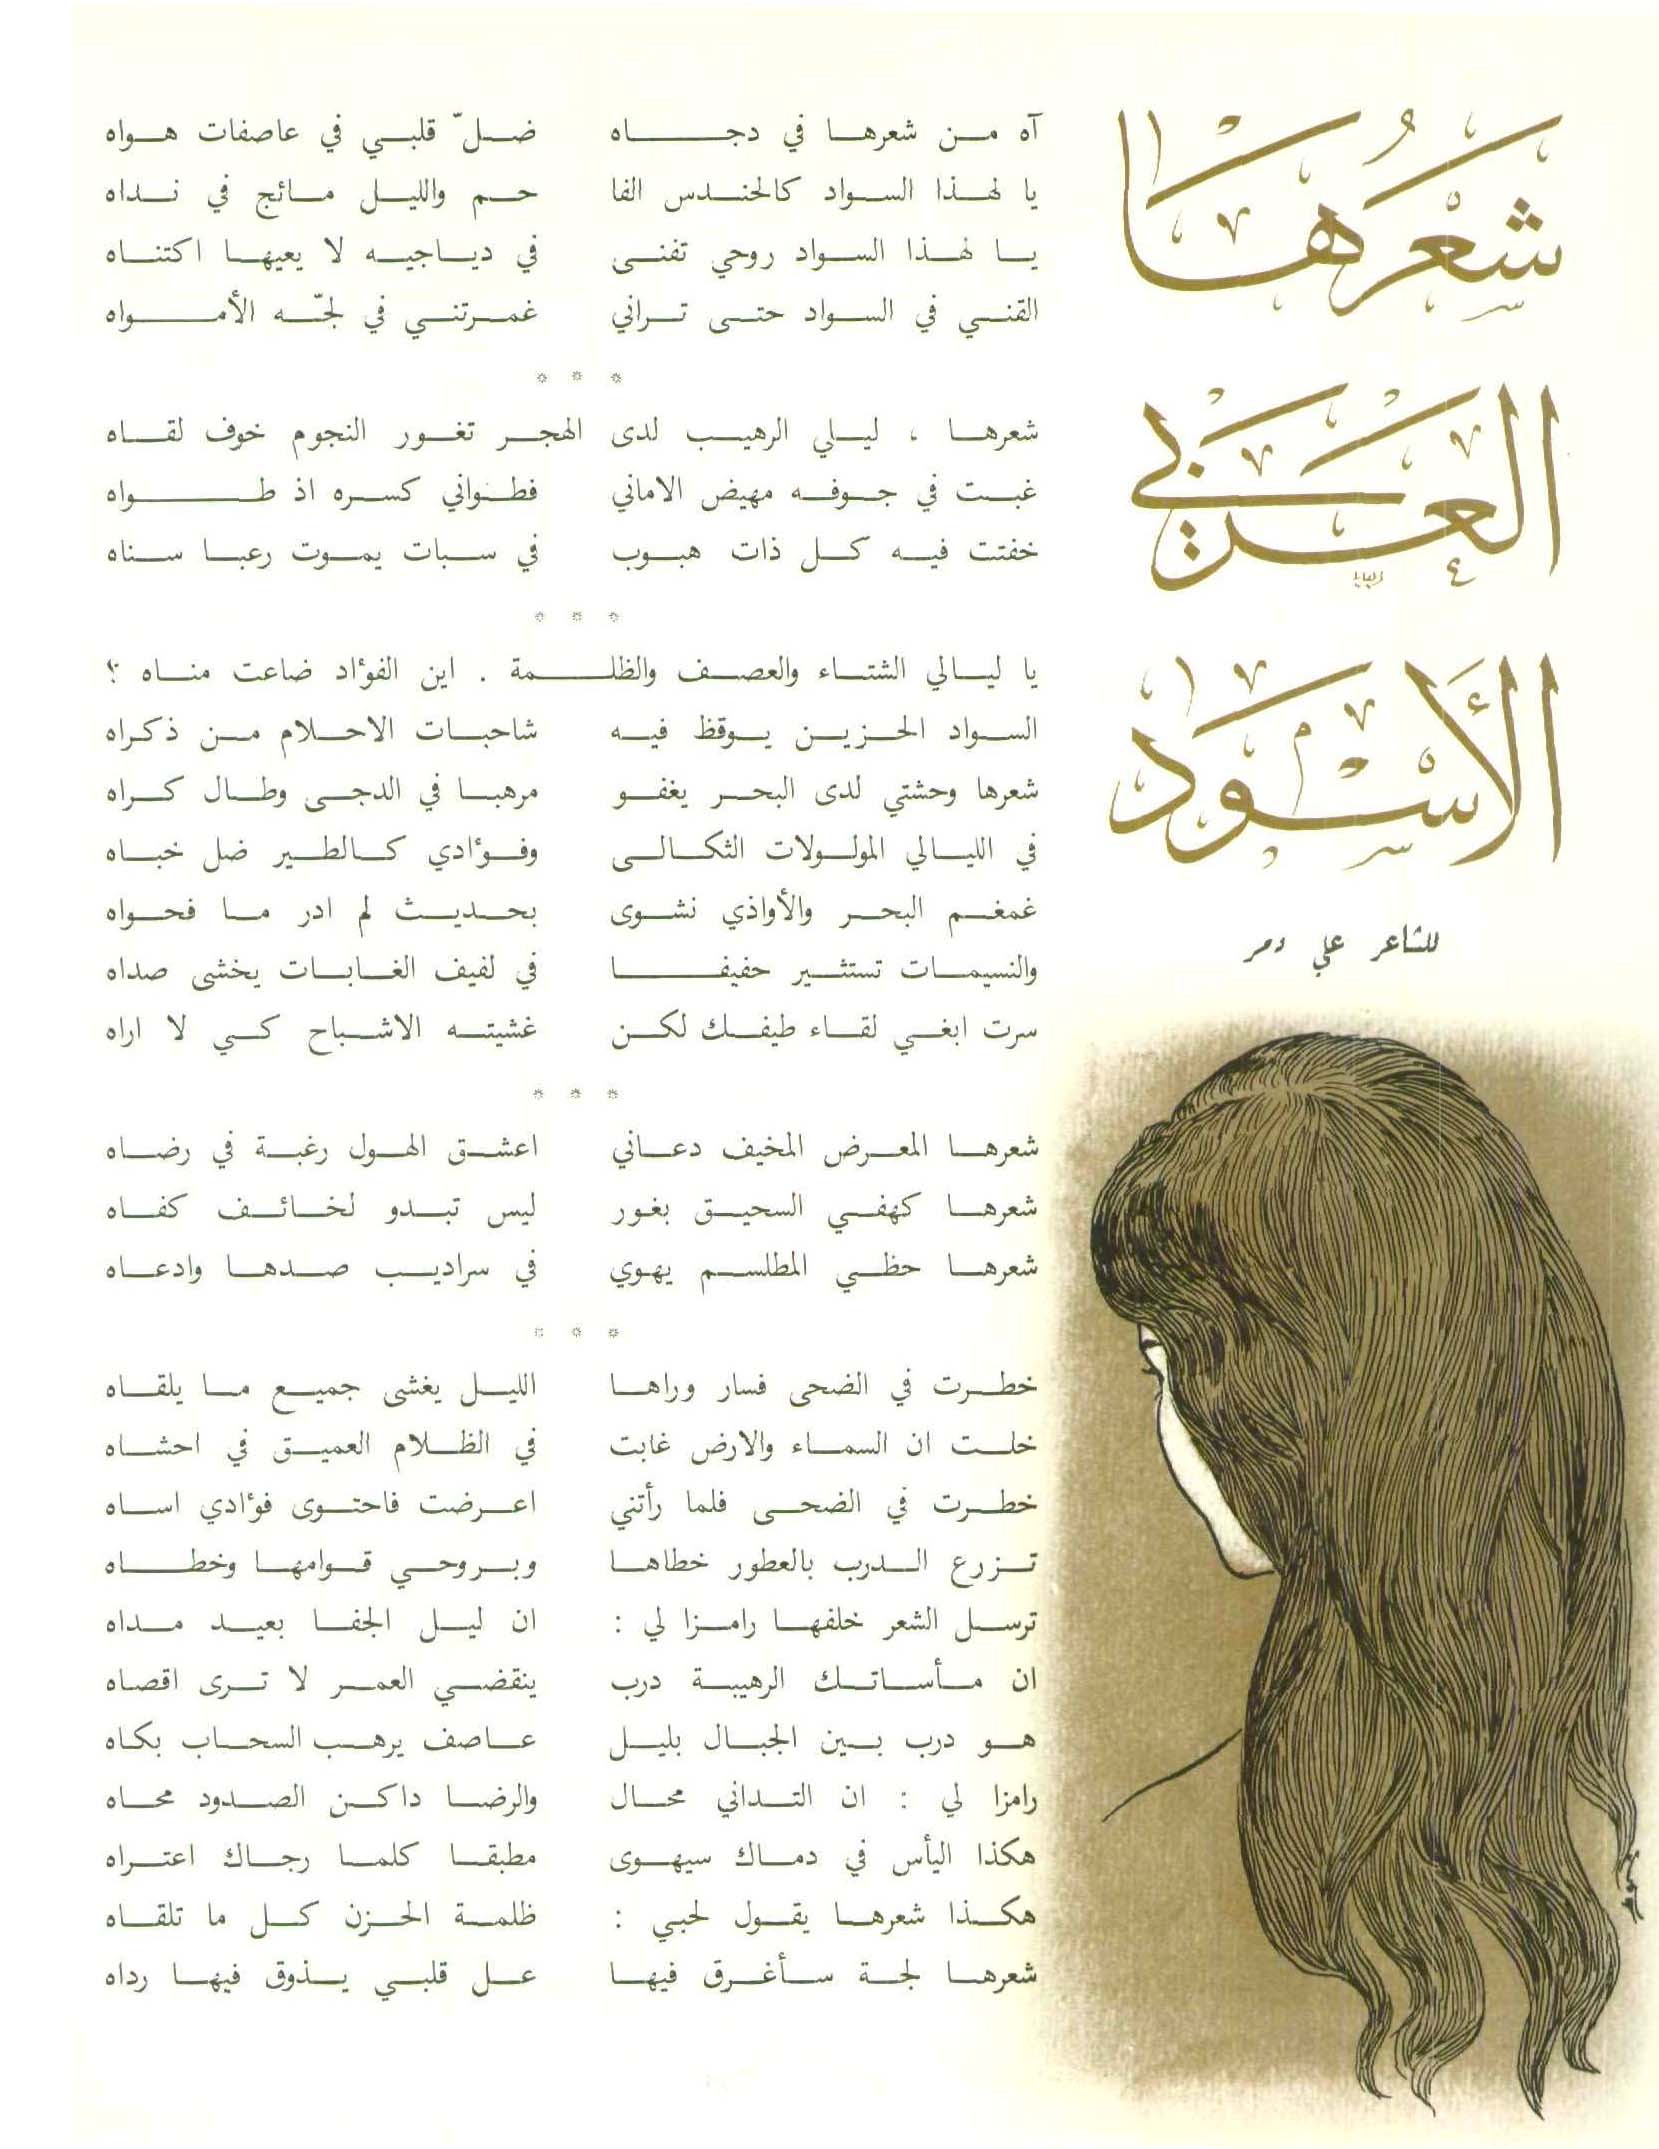 شَعْرُهَا
العَرَبي
الأَسْوَد
للشاعر علي دمر
آه مـن شعرهـا في دجـاه ضـلّ قلبـي في عاصفات هـواه
يا لهـذا السـواد كالحنـدس الفا حـم والليـل مـائج في نـداه
يـا لهـذا السـواد روحي تفنـى في ديـاجيـه لا يعيهـا اكتنـاه
القنـي في السـواد حتـى تـراني غمـرتنـي في لجّـه الأمـواه
* * *
شعرهـا ، ليـلي الرهيـب لدى الهجـر تغـور النجوم خوف لقـاه
غبـت في جـوفـه مهيض الاماني فطـواني كسـره اذ طـواه
خفتت فيـه كـل ذات هبـوب في سبـات يمـوت رعبـا سـناه
* * *
يا ليـالي الشتـاء والعصـف والظلـمة . اين الفؤاد ضاعت منـاه ؟
السـواد الحـزيـن يـوقظ فيـه شاحبـات الاحـلام مـن ذكـراه
شعرها وحشتي لدى البحـر يغفـو مرهبـا في الدجـى وطـال كـراه
في الليـالي المولـولات الثكـالـى وفـؤادي كـالطـير ضل خبـاه
غمغـم البحـر والأواذي نشـوى بحـديـث لم ادر مـا فحـواه
والنسيمـات تستثـير حفيفـا في لفيف الغـابـات يخشى صداه
سرت ابغـي لقـاء طيفـك لكـن غشيتـه الاشبـاح كـي لا اراه
* * *
شعرهـا المعـرض المخيف دعـاني اعشـق الهـول رغبـة في رضـاه
شعرهـا كهفـي السحيـق بغـور ليس تبـدو لخـائـف كفـاه
شعرهـا حظـي المطلسـم يهـوي في سراديـب صـدهـا وادعـاه
* * *
خطـرت في الضحى فسار وراهـا الليـل يغشى جميـع مـا يلقـاه
خلـت ان السمـاء والارض غابت في الظـلام العميـق في احشـاه
خطـرت في الضحـى فلما رأتني اعـرضت فاحتـوى فؤادي اسـاه
تـزرع الـدرب بالعطور خطاهـا وبـروحـي قـوامهـا وخطـاه
ترسـل الشعر خلفهـا رامـزا لي : ان ليـل الجفـا بعيـد مـداه
ان مـأسـاتـك الرهيبـة درب ينقضـي العمـر لا تـرى اقصـاه
هـو درب بـين الجبـال بليـل عـاصف يرهـب السحـاب بكـاه
رامزا لي : ان التـداني محـال والرضـا داكـن الصـدود محـاه
هكذا اليأس في دمـاك سيهـوى مطبقـا كلمـا رجـاك اعتـراه
هكـذا شعرهـا يقـول لحبي : ظلمـة الحـزن كـل ما تلقـاه
شعرهـا لجـة سـأغـرق فيهـا عـل قلبـي يـذوق فيهـا رداه